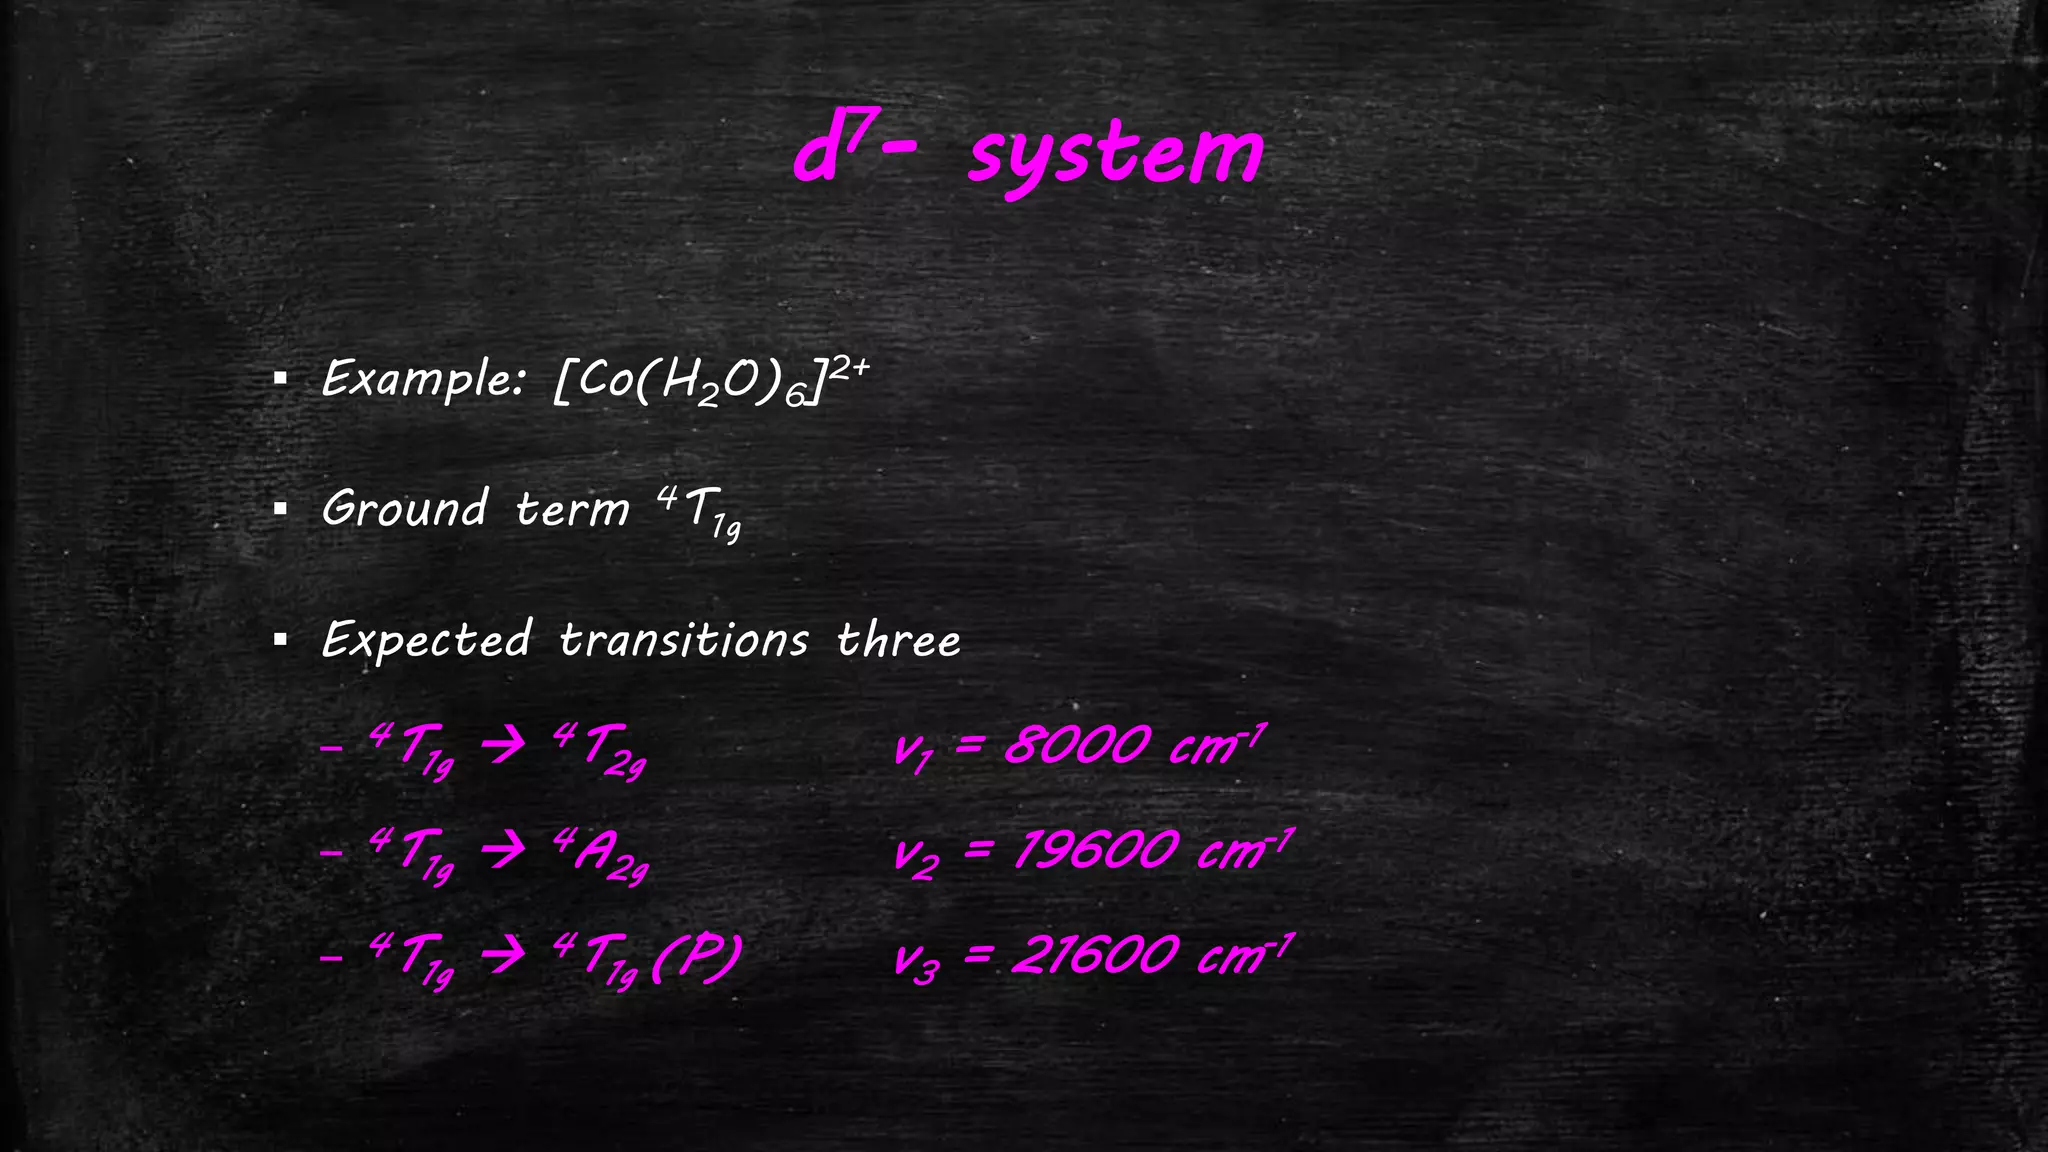 d⁷- system
▪ Example: [Co(H₂O)₆]²⁺
▪ Ground term ⁴T₁g
▪ Expected transitions three
– ⁴T₁g → ⁴T₂g v₁ = 8000 cm⁻¹
– ⁴T₁g → ⁴A₂g v₂ = 19600 cm⁻¹
– ⁴T₁g → ⁴T₁g (P) v₃ = 21600 cm⁻¹